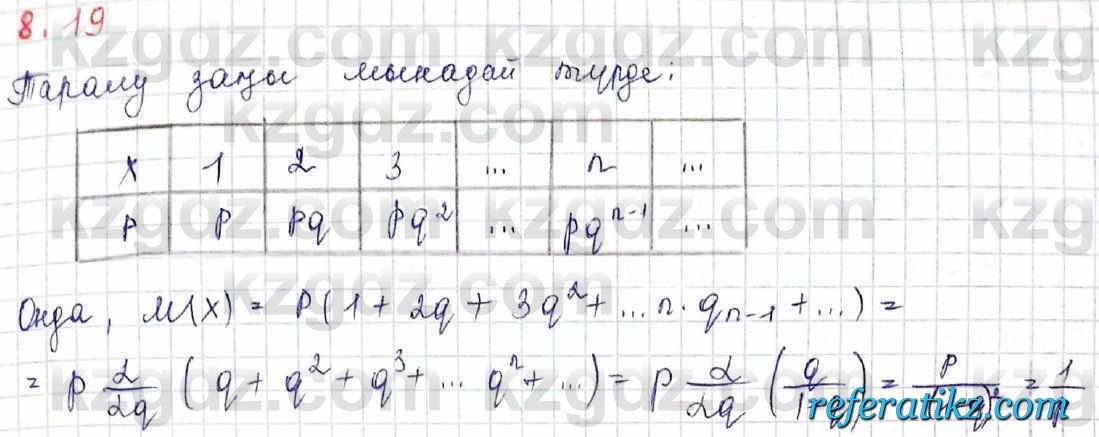 8.19
Таралу заңы мынадай түрде:
X 1 2 3 ... n ...
P P pq pq² ... pq^(n-1) ...
Онда, M(X) = P(1 + 2q + 3q² + ... n · q_(n-1) + ...) =
= p d/dq (q + q² + q³ + ... qⁿ + ...) = p d/dq (q/ = p/ = 1/
kzgdz.com kzgdz.com
kzgdz.com
kzgdz.com kzgdz.com
kzgdz.com
referatikz.com